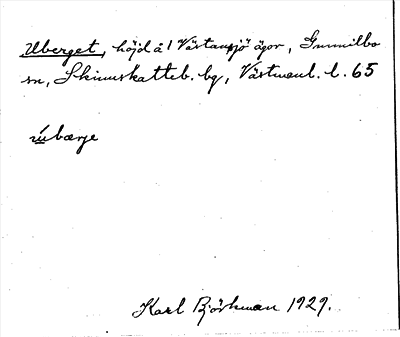 Uberget, höjd å Västansjö ägor, Gunnilbo
sn, Skinnskatteb. bg, Västmanl. l. 65
ú̲bærje
Karl Björkman 1929.